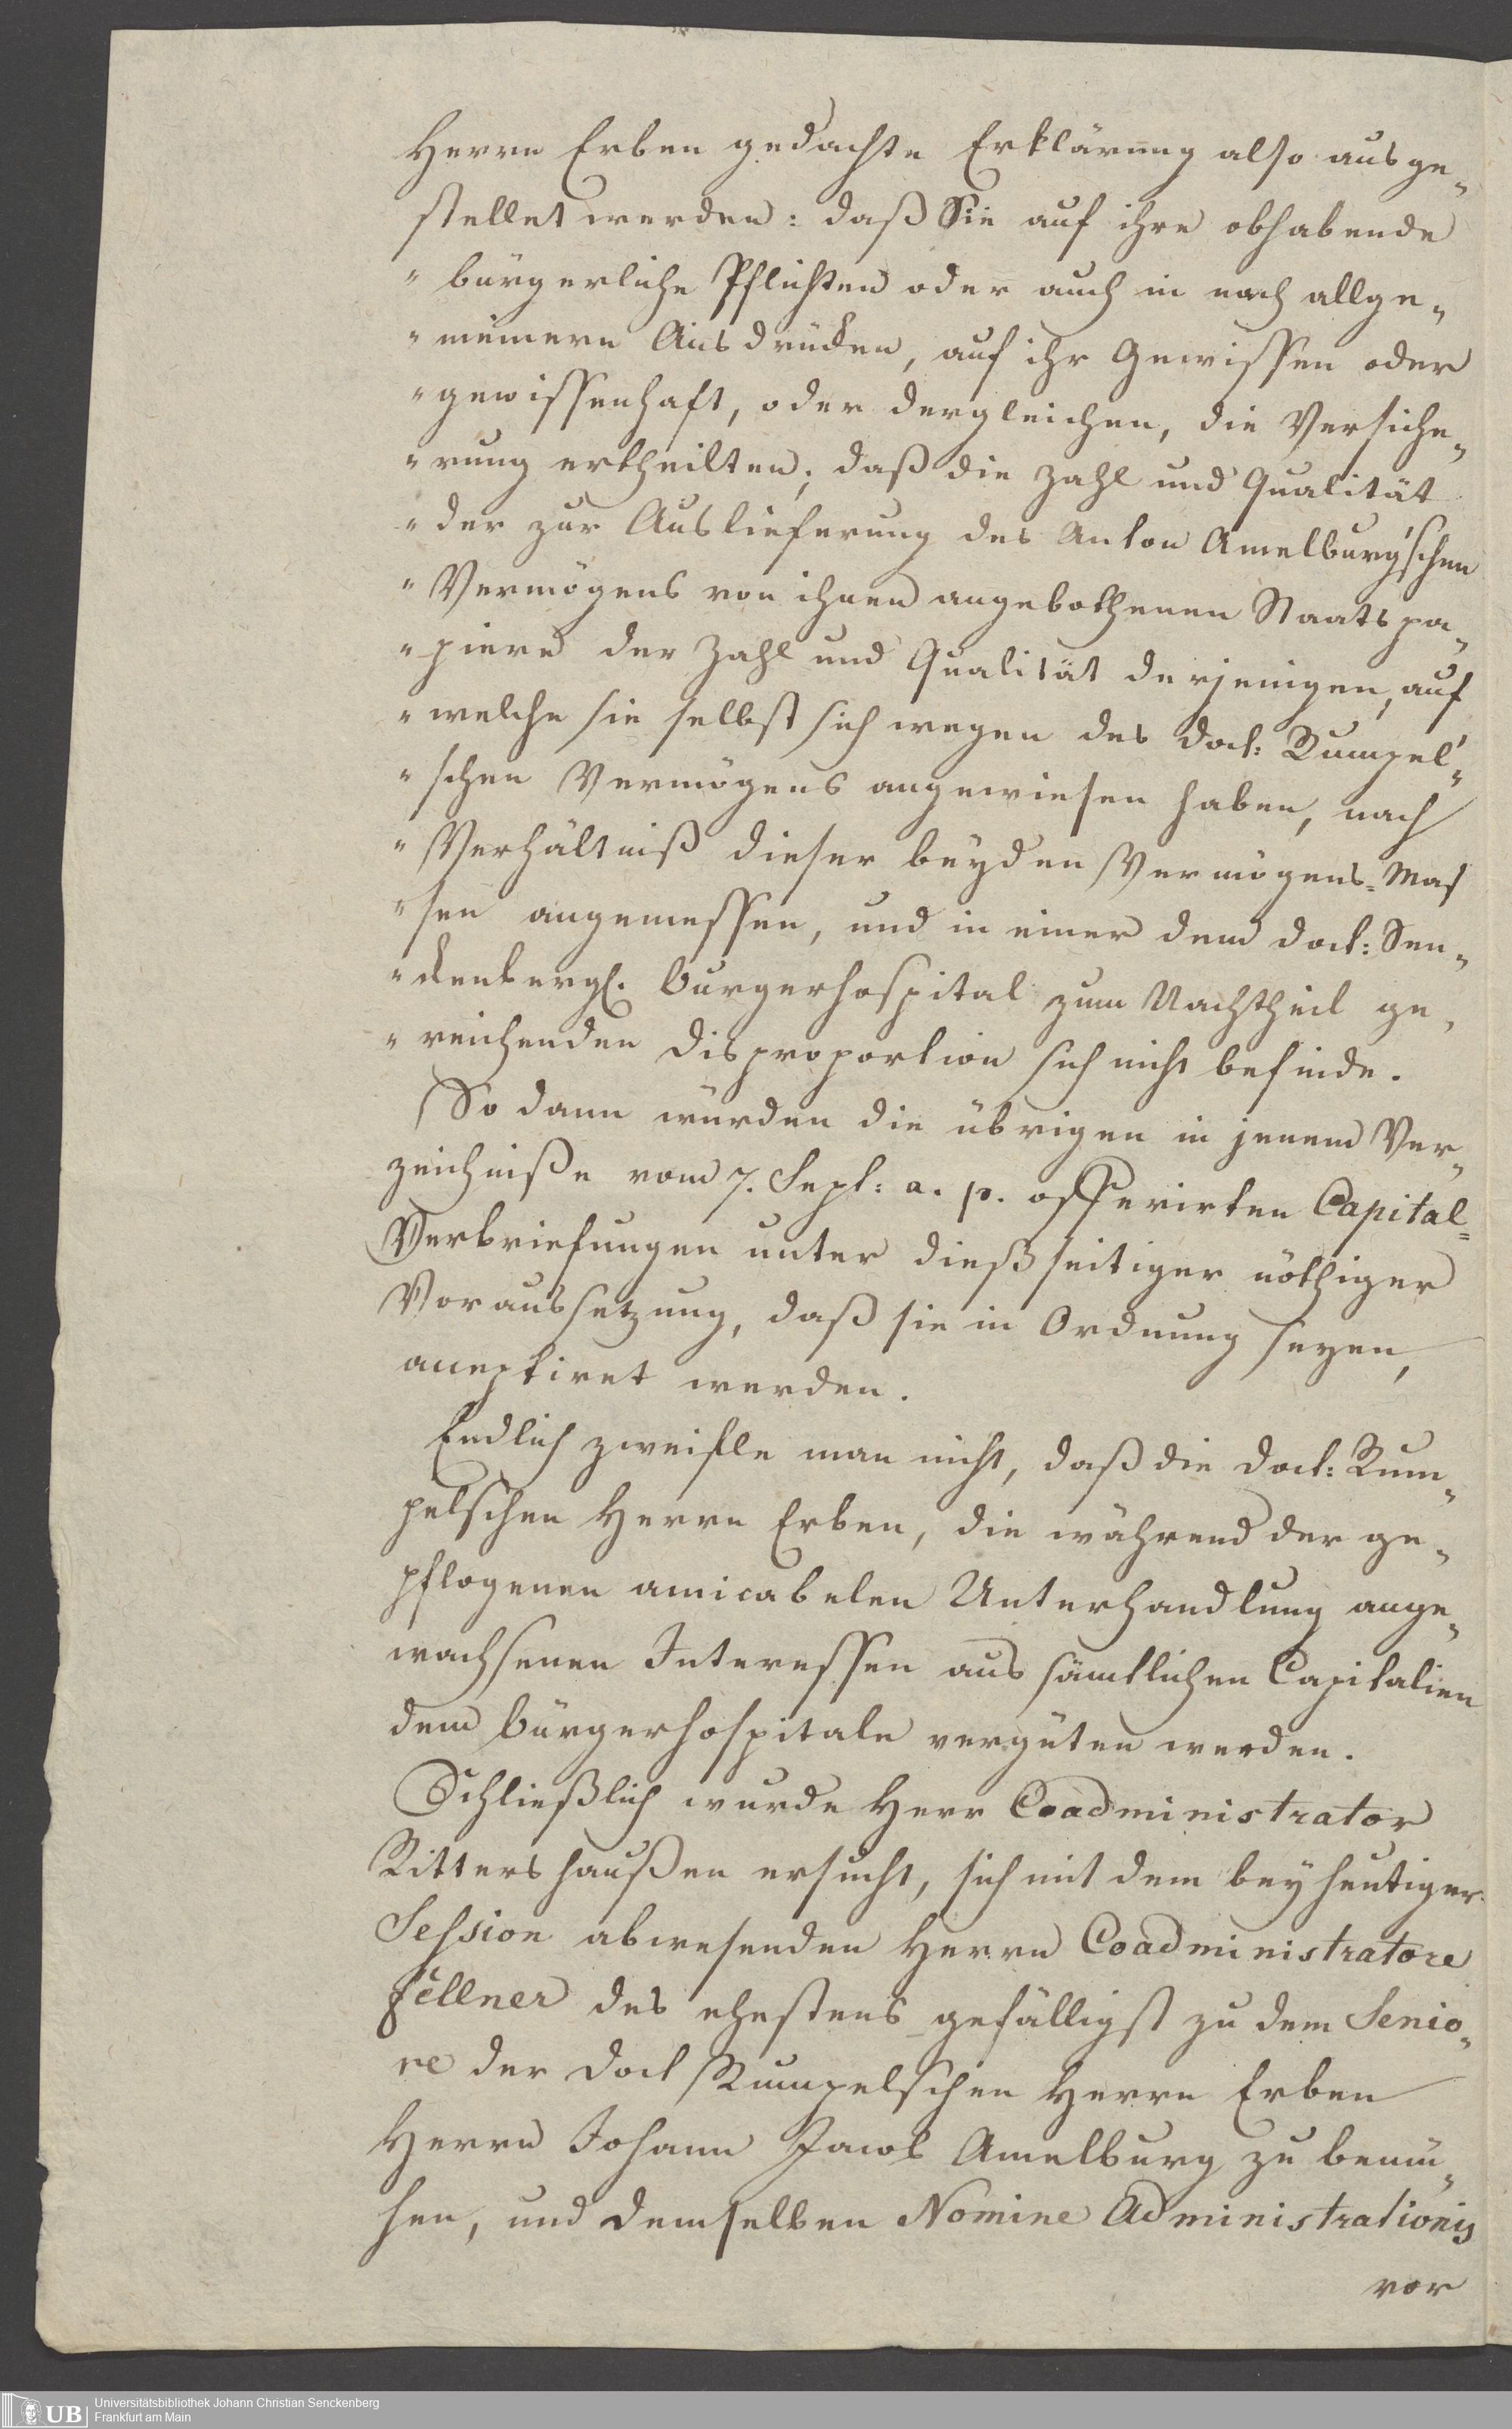 Herrn Erben gedachte Erklärung also ausge„
stellet werden: daß Sie auf ihre obhabende
„ bürgerliche Pflichten oder auch in noch allge„
„ meinern Ausdrücken, auf ihr Gewissen oder
„ gewissenhaft, oder dergleichen, die Versiche„
„ rung ertheilten; daß die Zahl und Qualität
„ der zur Auslieferung des Anton Amelburg'schen
„ Vermögens von ihnen angebothenen Staatspa„
„ piere der Zahl und Qualität derjenigen, auf
„ welche sie selbst sich wegen des Doct: Rumpel'„
„ schen Vermögens angewiesen haben, nach
„ Verhältniß dieser beyden Vermögens=Mas
„ sen angemessen, und in einer dem Doct: Sen„
„ ckenbergl. Burgerhospital zum Nachtheil ge„
„ reichenden Disproportion sich nicht befinde.
So dann würden die übrigen in jenem Ver„
zeichniße vom 7. Sept: a. p. offerirten Capital=
Verbriefungen unter dießseitiger nöthiger
Voraussetzung, daß sie in Ordnung seyen,
acceptiret werden.
Endlich zweifle man nicht, daß die Doct: Rum„
pelschen Herrn Erben, die während der ge„
pflogenen amicabelen Unterhandlung ange„
wachsenen Interessen aus sämtlichen Capitalien
dem Bürgerhospitale vergüten werden.
Schließlich wurde Herr Coadministrator
Rittershaußen ersucht, sich mit dem bey heutiger
Session abwesenden Herrn Coadministratore
Fellner des ehestens gefälligst zu dem Senio„
re der Doct Rumpelschen Herrn Erben
Herrn Johann Jacob Amelburg zu bemü„
hen, und demselben Nomine Administrationis
vor
UB
Universitätsbibliothek Johann Christian Senckenberg
Frankfurt am Main